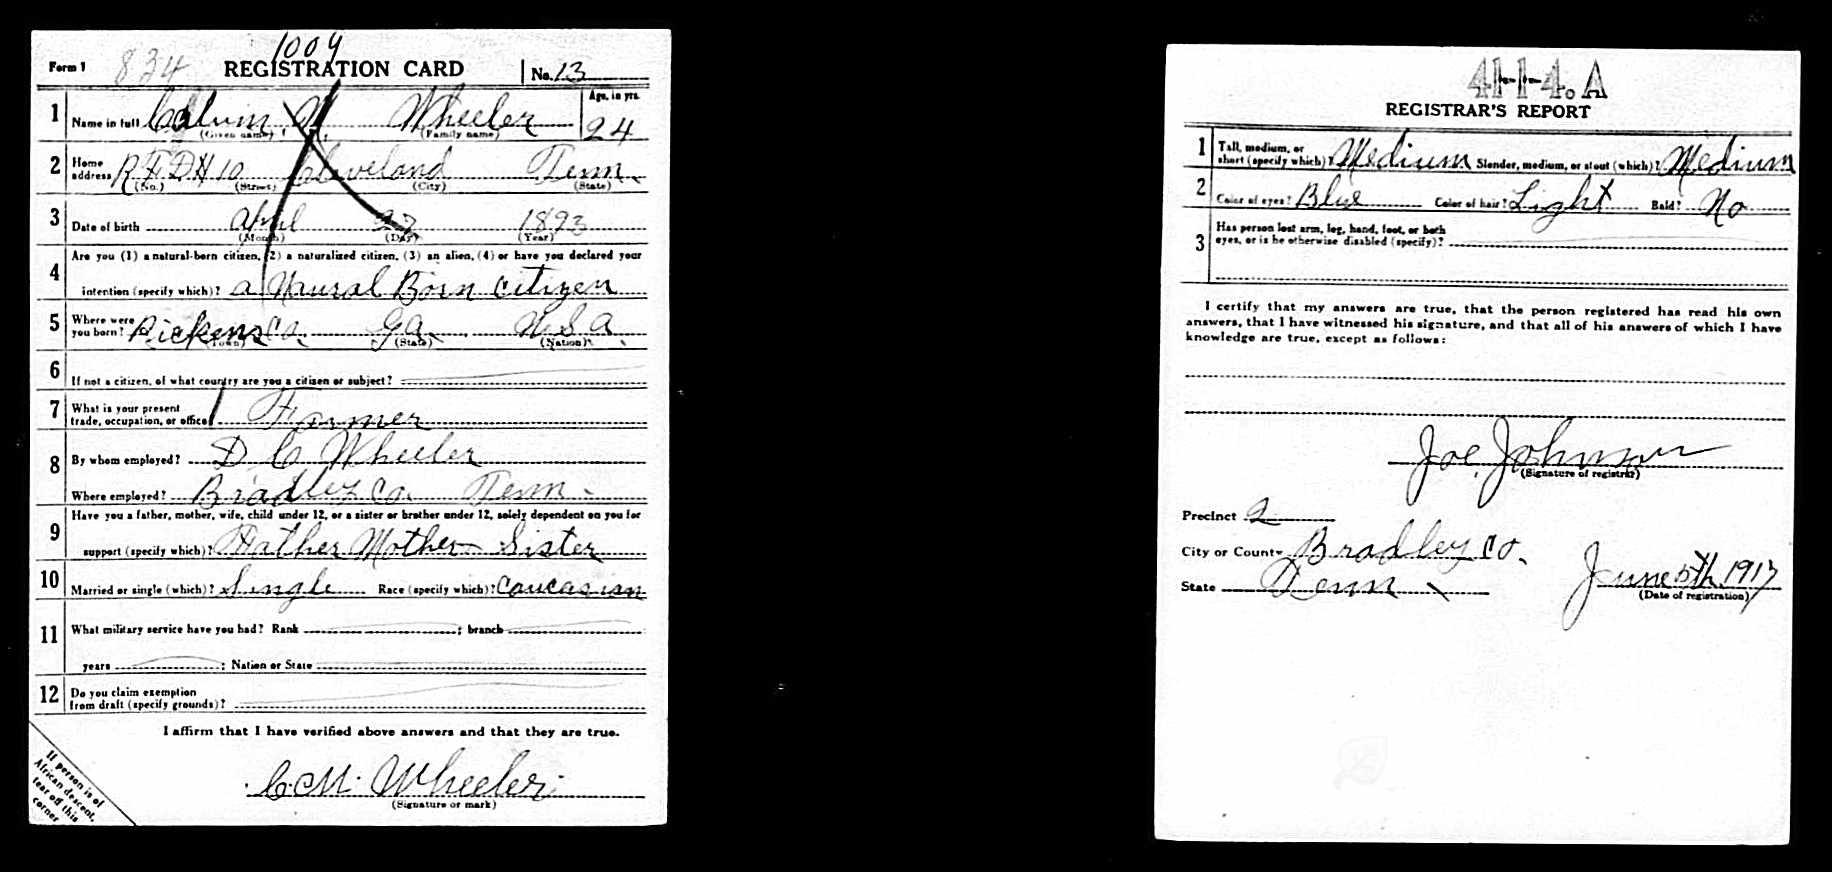 1009
Form 1 834 REGISTRATION CARD No. 13
1 Name in full Calvin M. Wheeler Age, in yrs. 24
(Given name) (Family name)
2 Home address R F D # 10 Cleveland Tenn.
(No.) (Street) (City) (State)
3 Date of birth April 1893
(Month) (Day) (Year)
4 Are you (1) a natural-born citizen, (2) a naturalized citizen, (3) an alien, (4) or have you declared your
intention (specify which)? a Naural Born citizen
5 Where were you born? Pickens Co. Ga. U.S.A.
(Town) (State) (Nation)
6 If not a citizen, of what country are you a citizen or subject?
7 What is your present
trade, occupation, or office? Farmer
8 By whom employed? D C Wheeler
Where employed? Bradley Co. Tenn.
9 Have you a father, mother, wife, child under 12, or a sister or brother under 12, solely dependent on you for
support (specify which)? Father Mother Sister
10 Married or single (which)? Single Race (specify which)? Caucasian
11 What military service have you had? Rank ; branch
years ; Nation or State
12 Do you claim exemption
from draft (specify grounds)?
I affirm that I have verified above answers and that they are true.
C. M. Wheeler
(Signature or mark)
If person is of
African descent,
tear off this
corner
41-1-4. A
REGISTRAR'S REPORT
1 Tall, medium, or
short (specify which)? Medium Slender, medium, or stout (which)? Medium
2 Color of eyes? Blue Color of hair? Light Bald? No
3 Has person lost arm, leg, hand, foot, or both
eyes, or is he otherwise disabled (specify)?
I certify that my answers are true, that the person registered has read his own
answers, that I have witnessed his signature, and that all of his answers of which I have
knowledge are true, except as follows:
Joe Johnson
(Signature of registrar)
Precinct 2
City or County Bradley Co.
State Tenn June 5th 1917
(Date of registration)